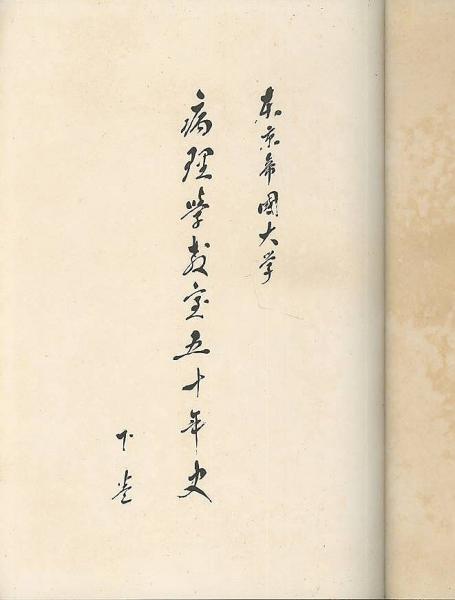 東京帝國大学
病理學教室五十年史
下巻